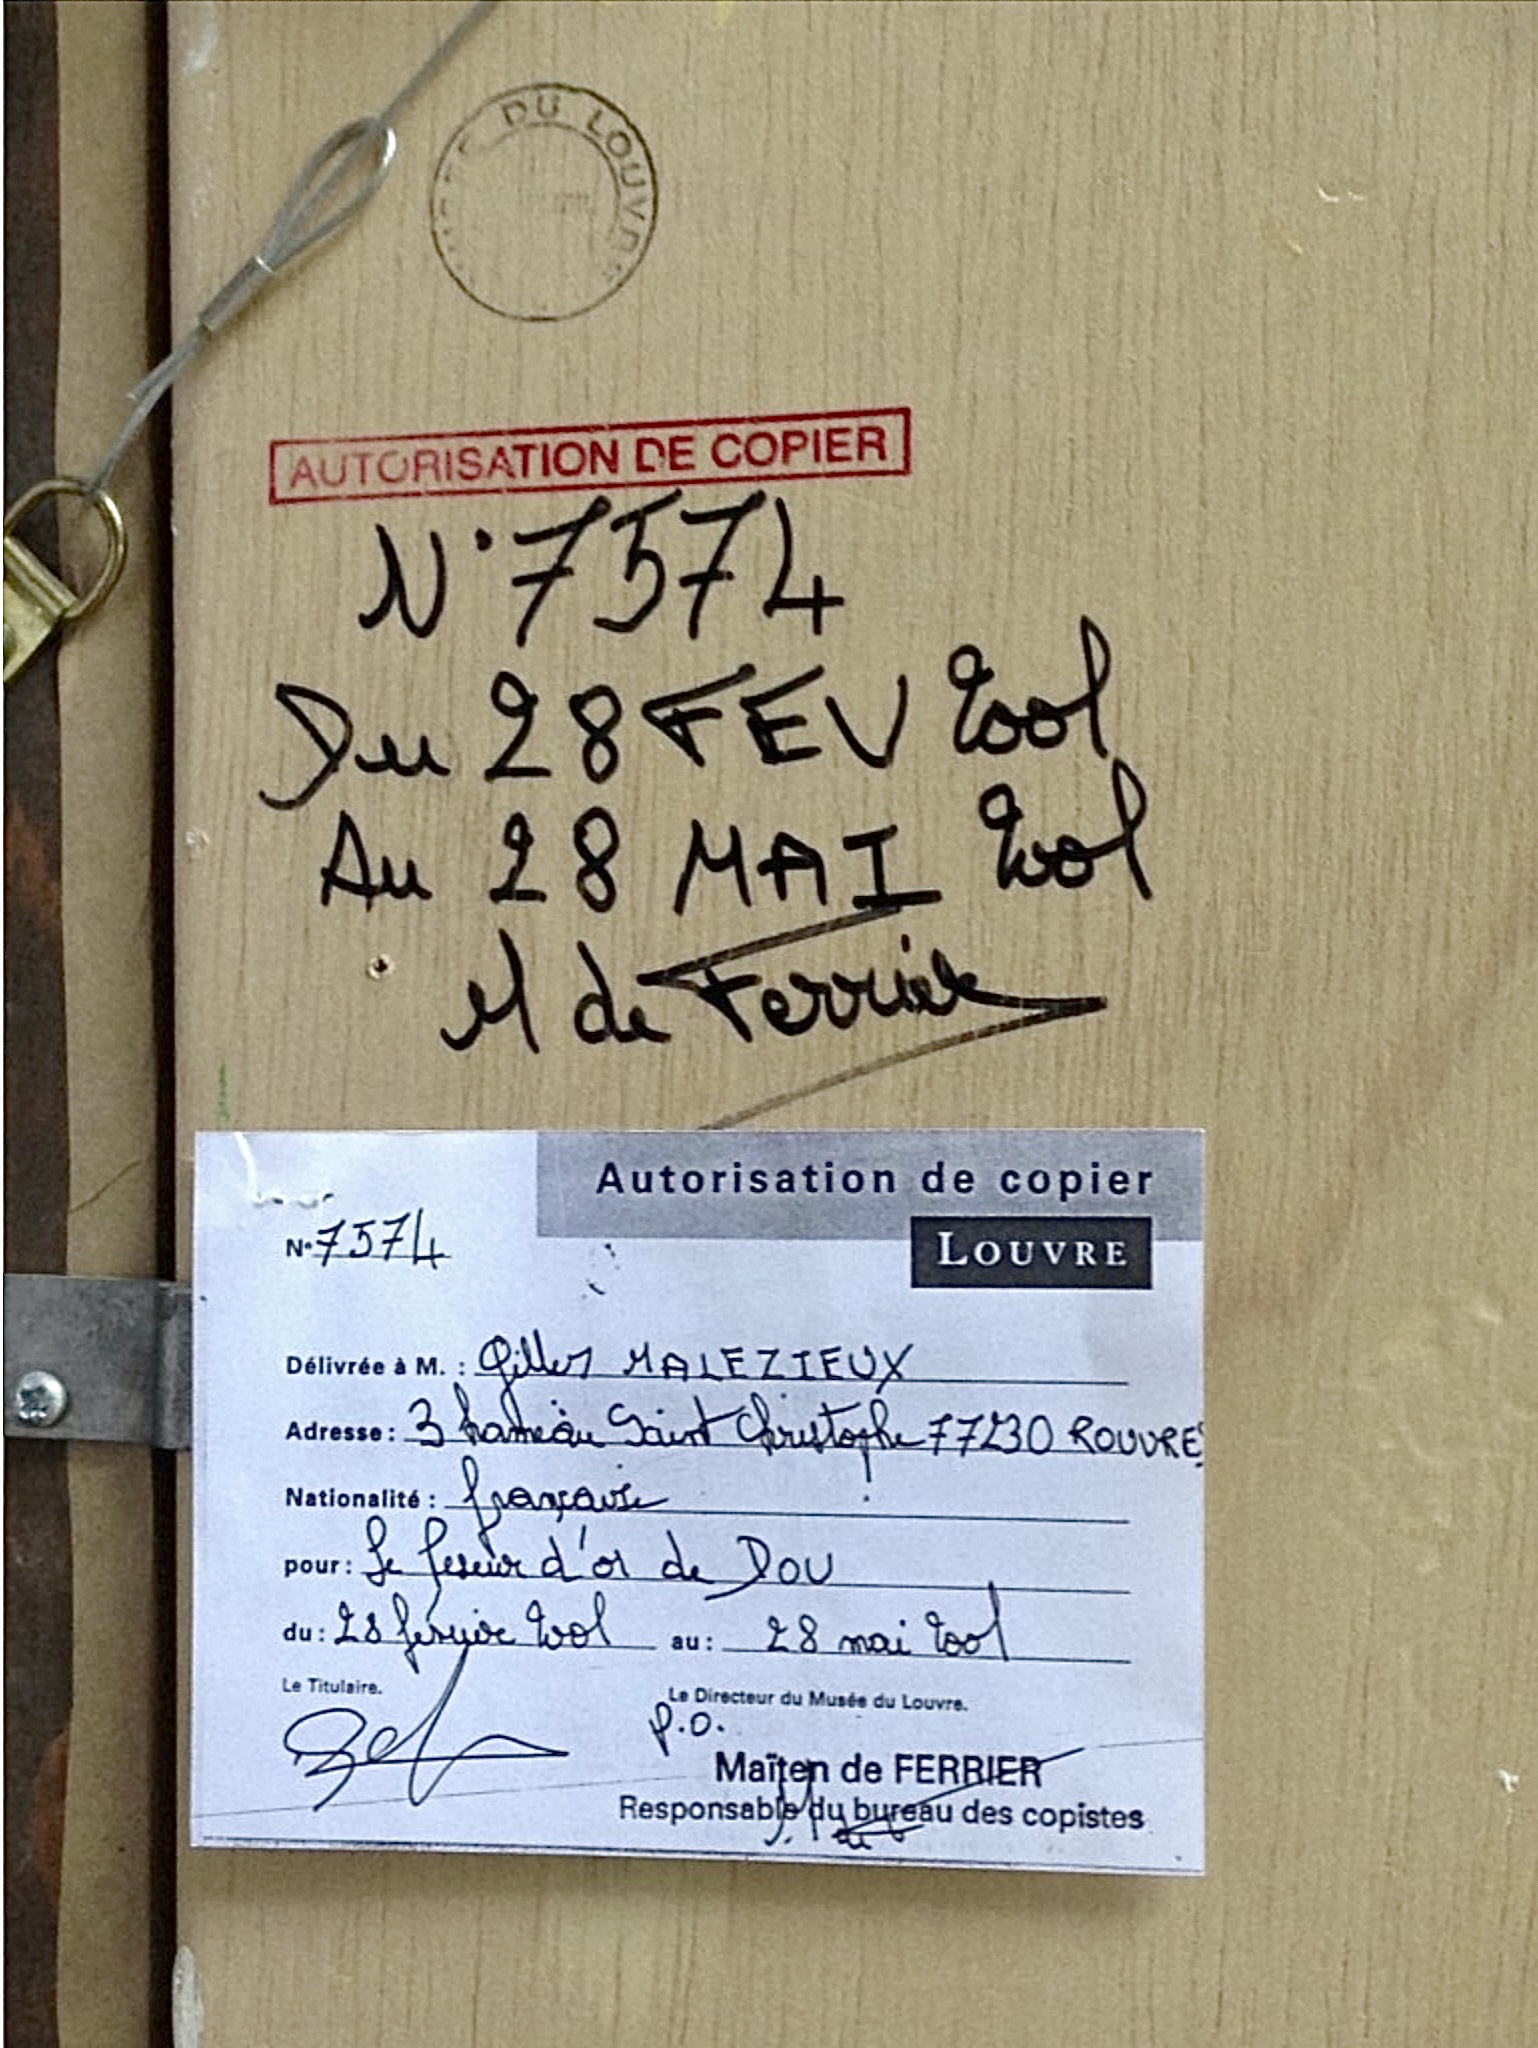 DU LOUVRE
AUTORISATION DE COPIER
N°7574
Du 28 FEV 2001
Au 28 MAI 2001
M de Ferrier
Autorisation de copier
N° 7574
LOUVRE
Délivrée à M. : Gilles MALEZIEUX
Adresse : 3 hameau Saint Christophe 77230 ROUVRES
Nationalité : française
pour : Le Peseur d'or de DOU
du : 28 février 2001 au : 28 mai 2001
Le Titulaire. Le Directeur du Musée du Louvre.
P.O.
Maïten de FERRIER
Responsable du bureau des copistes